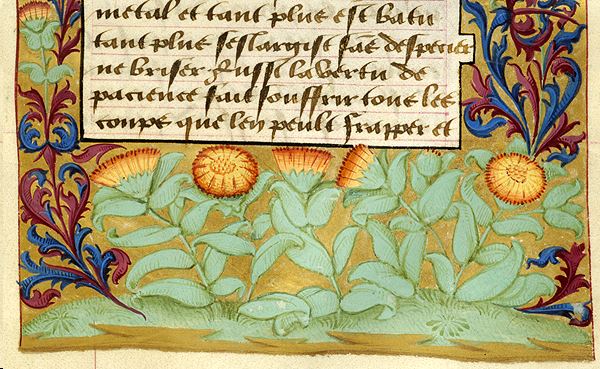 metal et tant plus est batu
tant plus seslargist sãs despecier
ne briser Aussi la vertu de
pacience fait souffrir tous les
coups que len peult frapper et